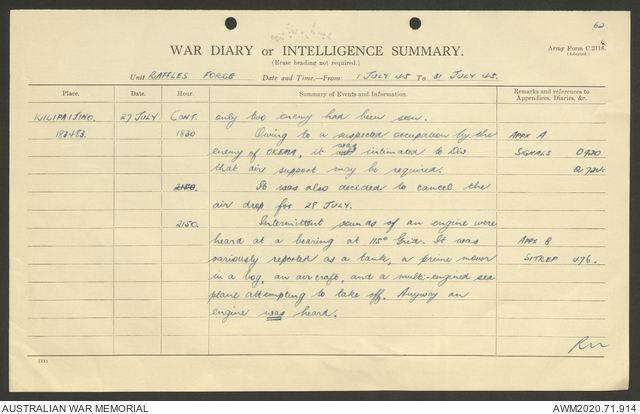 62.
WAR DIARY or INTELLIGENCE SUMMARY.
(Erase heading not required.)
Army Form C.2118.
(Adapted.)
Unit RAFFLES FORCE Date and Time—From 1 JULY 45 To 31 JULY 45.
Place. Date. Hour. Summary of Events and Information. Remarks and references to Appendices, Diaries, &c.
KILIPAIJINO. 27 JULY CONT. only two enemy had been seen.
182483. 1830 Owing to a suspected occupation by the APPX A
enemy of it was intimated to Div SIGNALS 0920
that air support may be required.
2150. It was also decided to cancel the
air drop for 28 JULY.
2150. Intermittent sounds of an engine were
heard at a bearing at 115° Grid. It was APPX B
variously reported as a tank, a prime mover SITREP 476.
in a bog, an aircraft, and a multi-engined sea
plane attempting to take off. Anyway an
engine was heard.
AUSTRALIAN WAR MEMORIAL AWM2020.71.914